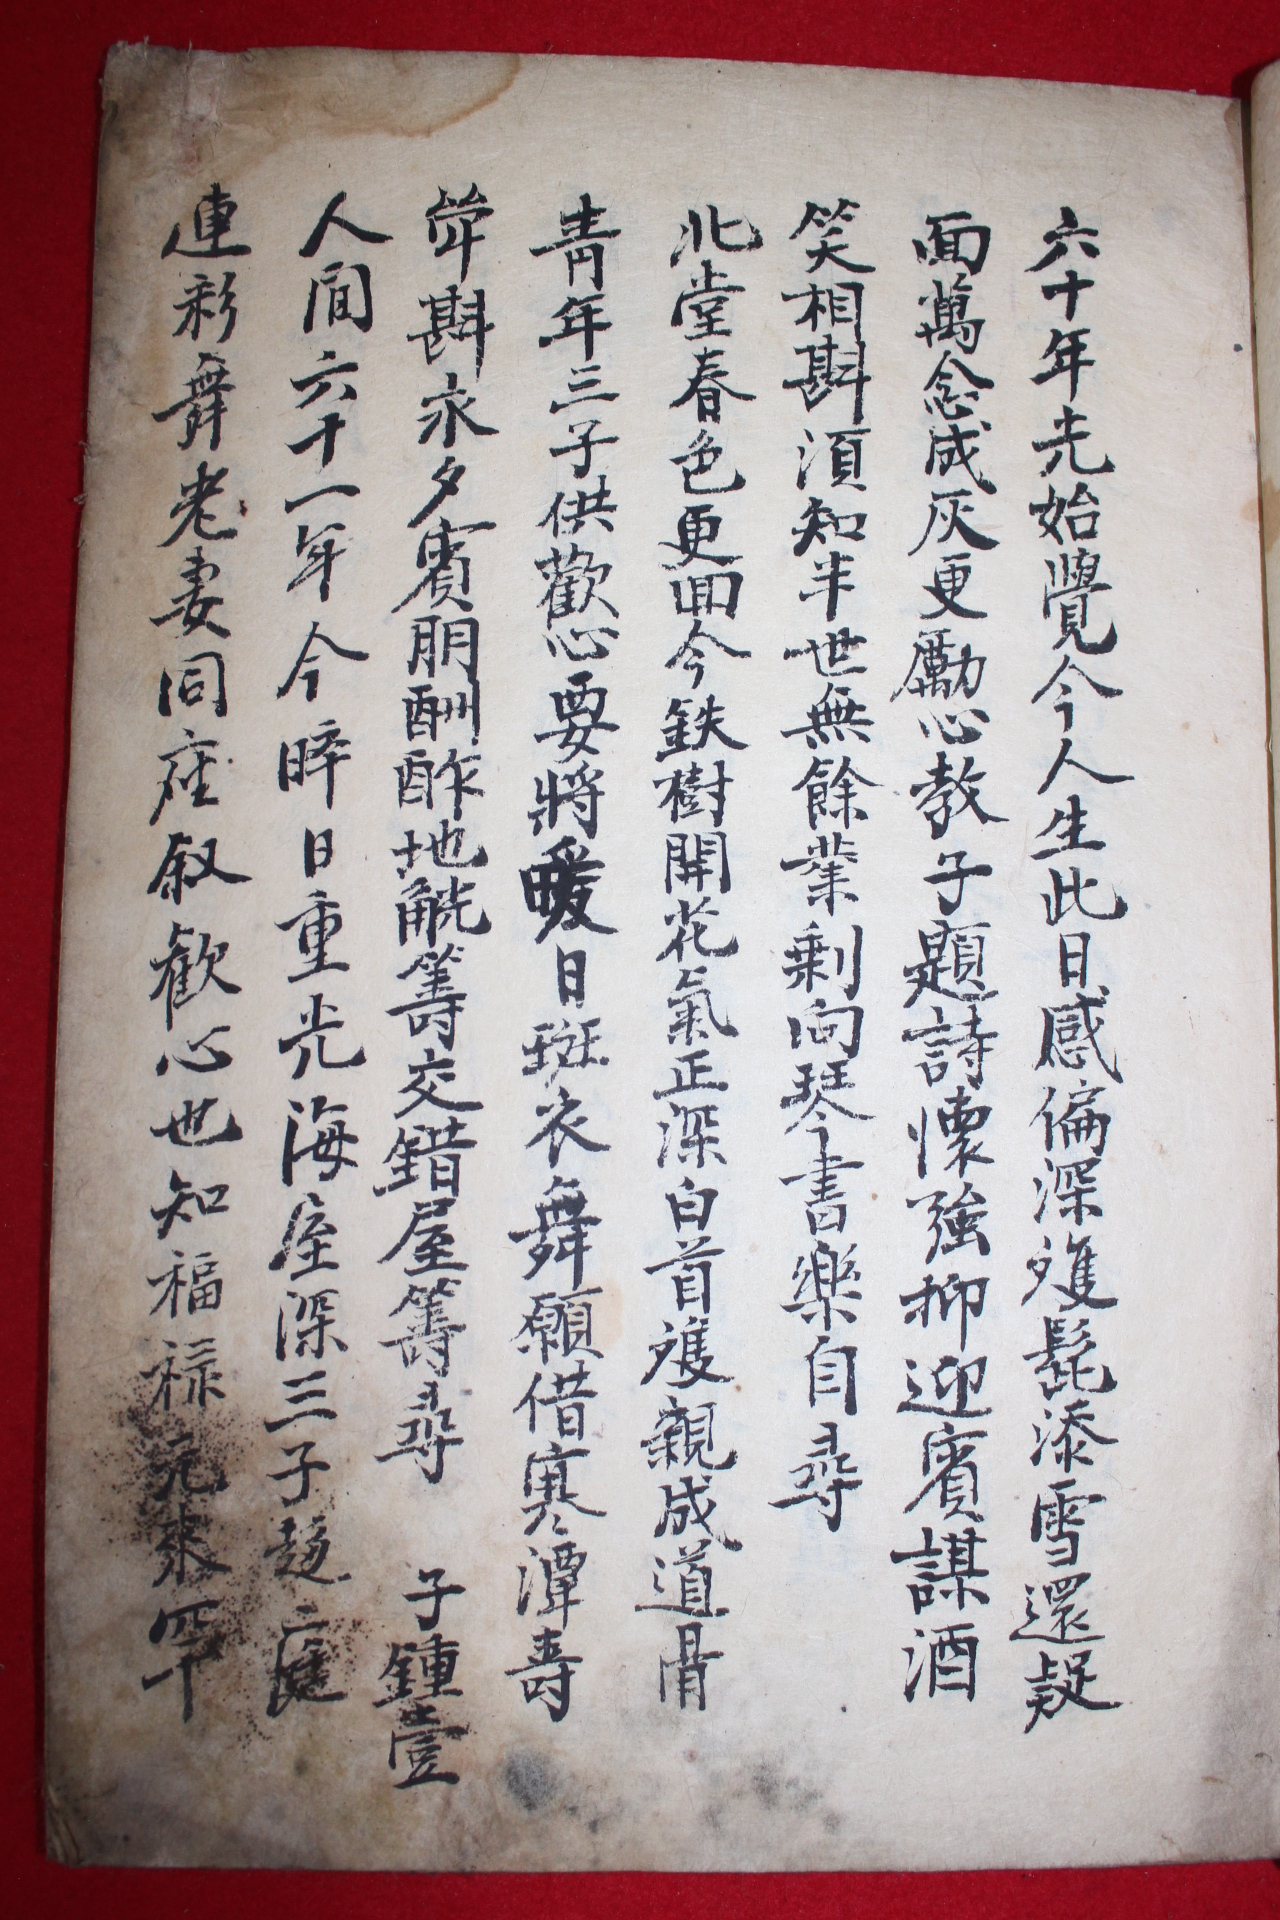 六十年光始覺今人生此日感偏深雙髭添雪還疑
面萬念成灰更勵心教子題詩懷強抑迎賓謀酒
笑相斟須知半世無餘業剩向琴書樂自尋
北堂春色更回今鉄樹開花氣正深白首雙親成道骨
青年三子供歡心要將暖日斑衣舞願借寒潭壽
斝斟永夕賓朋酬酢地觥籌交錯屋籌尋 子鍾壹
人間六十一年今晬日重光海屋深三子趍庭
連彩舞老妻同座叙歡心也知福祿元來罕